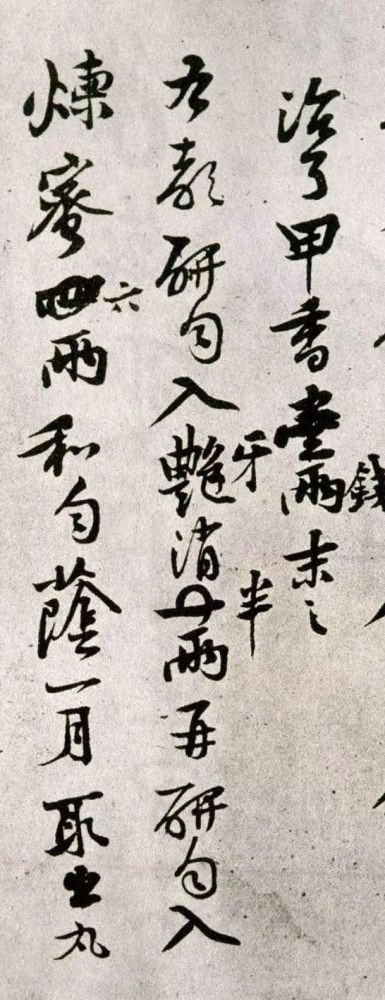 治了甲香壹兩錢末之
右都研匀入艷牙消半兩再研匀入
煉蜜四六兩和匀蔭一月取出丸